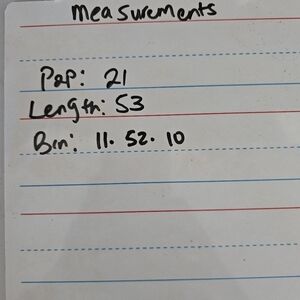 Measurements
Pop: 21
Length: 53
Bin: 11. 52. 10